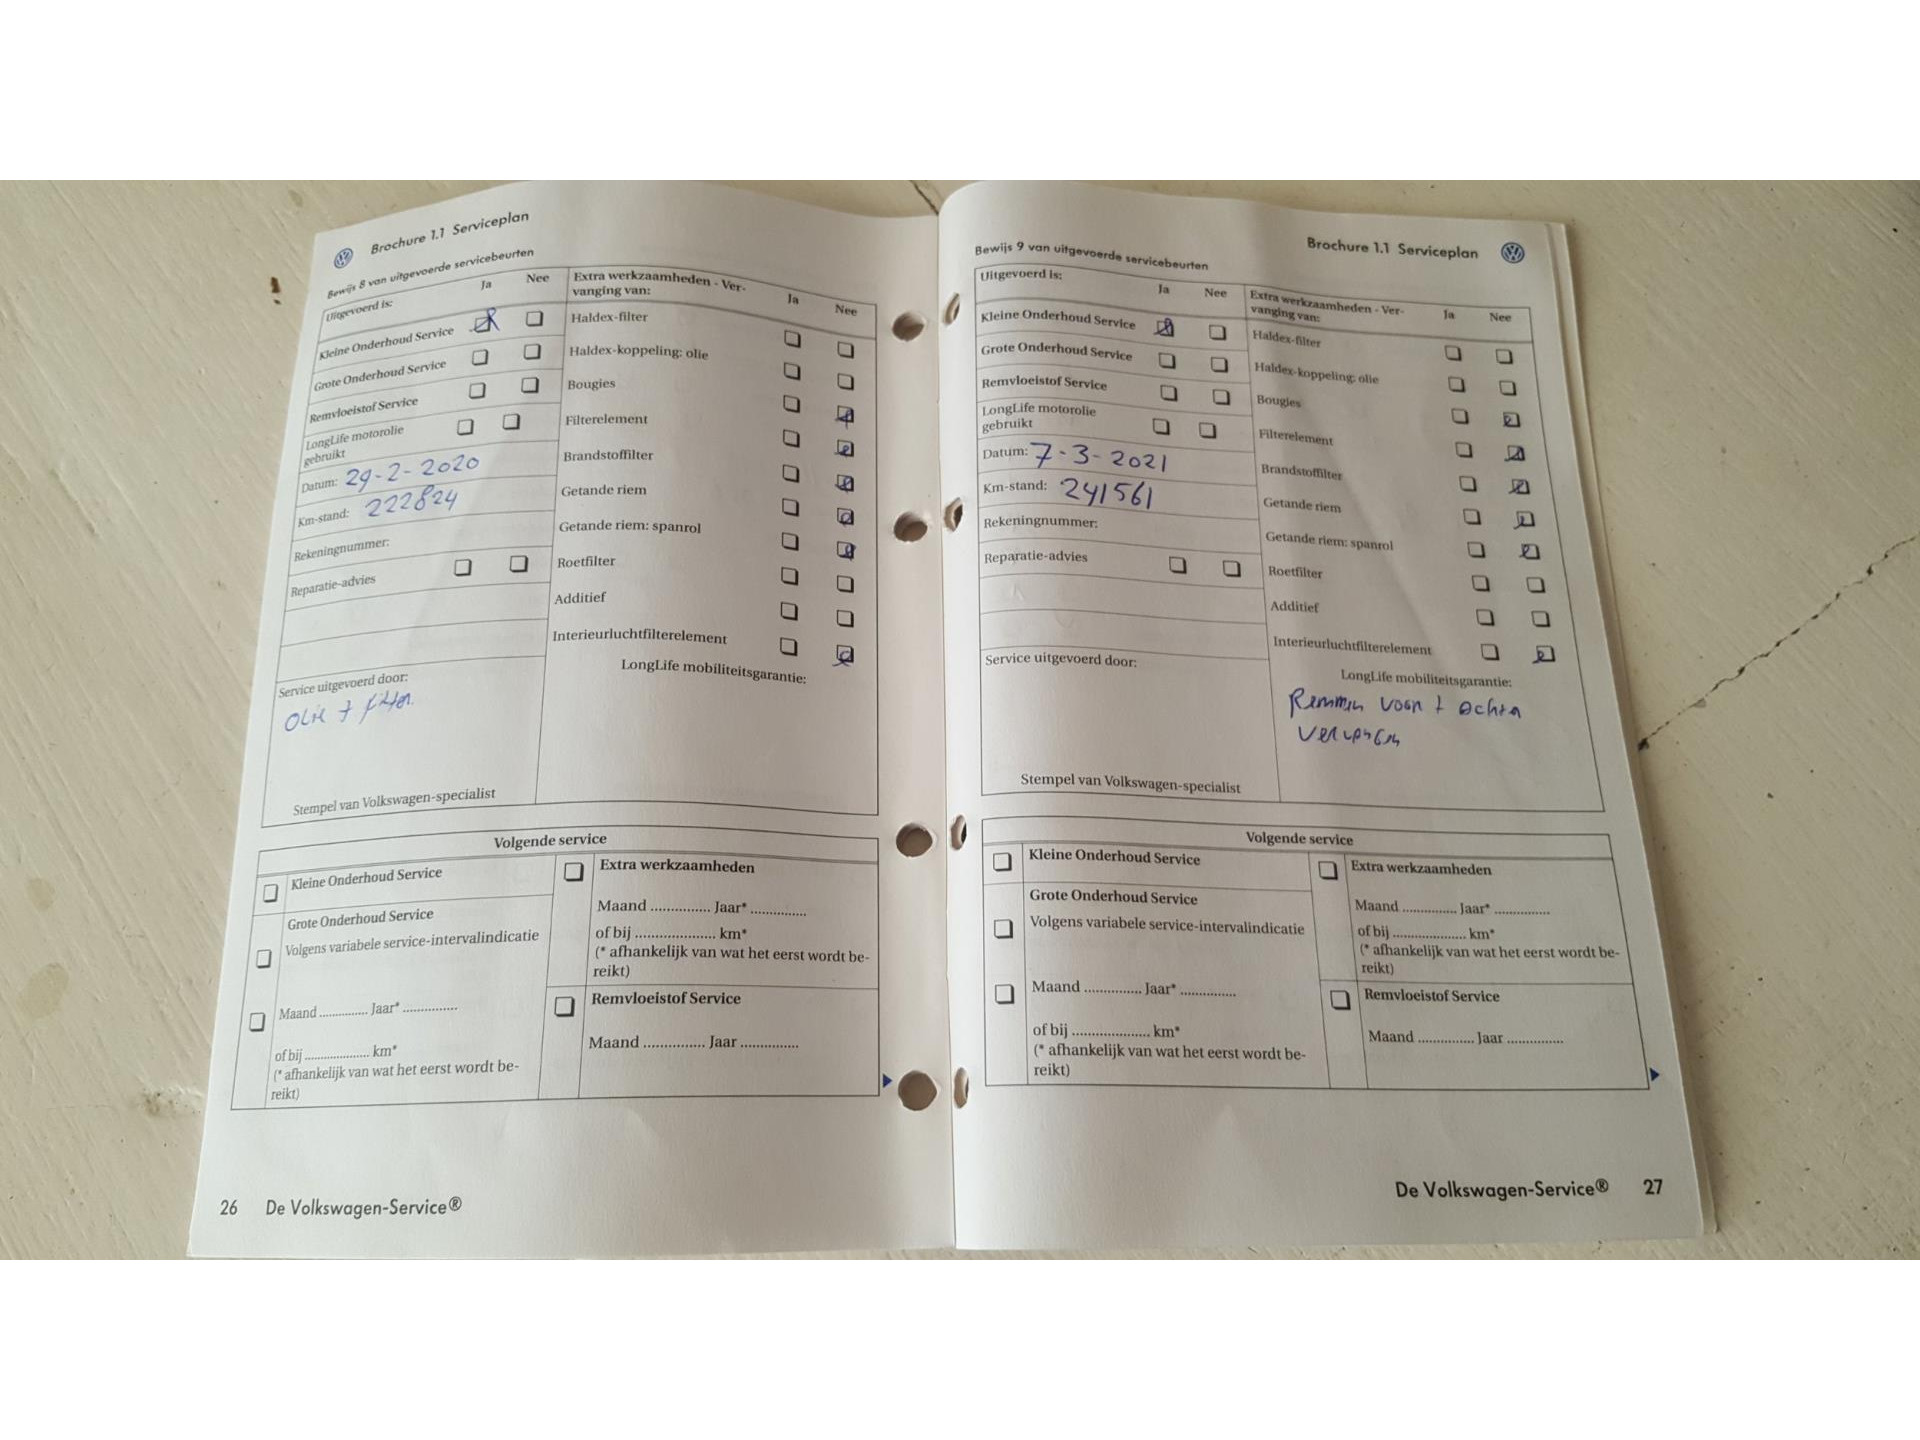 Brochure 1.1 Serviceplan
Bewijs 8 van uitgevoerde servicebeurten
Uitgevoerd is:
Ja
Nee
Kleine Onderhoud Service
Grote Onderhoud Service
Remvloeistof Service
LongLife motorolie
gebruikt
Datum: 29-2-2020
Km-stand: 222824
Rekeningnummer:
Reparatie-advies
Service uitgevoerd door:
Olie + filter.
Stempel van Volkswagen-specialist
Extra werkzaamheden - Ver-
vanging van:
Ja
Nee
Haldex-filter
Haldex-koppeling: olie
Bougies
Filterelement
Brandstoffilter
Getande riem
Getande riem: spanrol
Roetfilter
Additief
Interieurluchtfilterelement
LongLife mobiliteitsgarantie:
Volgende service
Kleine Onderhoud Service
Grote Onderhoud Service
Volgens variabele service-intervalindicatie
Maand .............. Jaar* ...............
of bij .................... km*
(* afhankelijk van wat het eerst wordt be-
reikt)
Extra werkzaamheden
Maand ............... Jaar* ..............
of bij .................... km*
(* afhankelijk van wat het eerst wordt be-
reikt)
Remvloeistof Service
Maand ............... Jaar ..............
26 De Volkswagen-Service®
Brochure 1.1 Serviceplan
Bewijs 9 van uitgevoerde servicebeurten
Uitgevoerd is:
Ja
Nee
Kleine Onderhoud Service
Grote Onderhoud Service
Remvloeistof Service
LongLife motorolie
gebruikt
Datum: 7-3-2021
Km-stand: 241561
Rekeningnummer:
Reparatie-advies
Service uitgevoerd door:
Stempel van Volkswagen-specialist
Extra werkzaamheden - Ver-
vanging van:
Ja
Nee
Haldex-filter
Haldex-koppeling: olie
Bougies
Filterelement
Brandstoffilter
Getande riem
Getande riem: spanrol
Roetfilter
Additief
Interieurluchtfilterelement
LongLife mobiliteitsgarantie:
Remmen voor + achter
Volgende service
Kleine Onderhoud Service
Grote Onderhoud Service
Volgens variabele service-intervalindicatie
Maand .............. Jaar* ..............
of bij .................... km*
(* afhankelijk van wat het eerst wordt be-
reikt)
Extra werkzaamheden
Maand .............. Jaar* ..............
of bij .................... km*
(* afhankelijk van wat het eerst wordt be-
reikt)
Remvloeistof Service
Maand .............. Jaar ..............
De Volkswagen-Service® 27